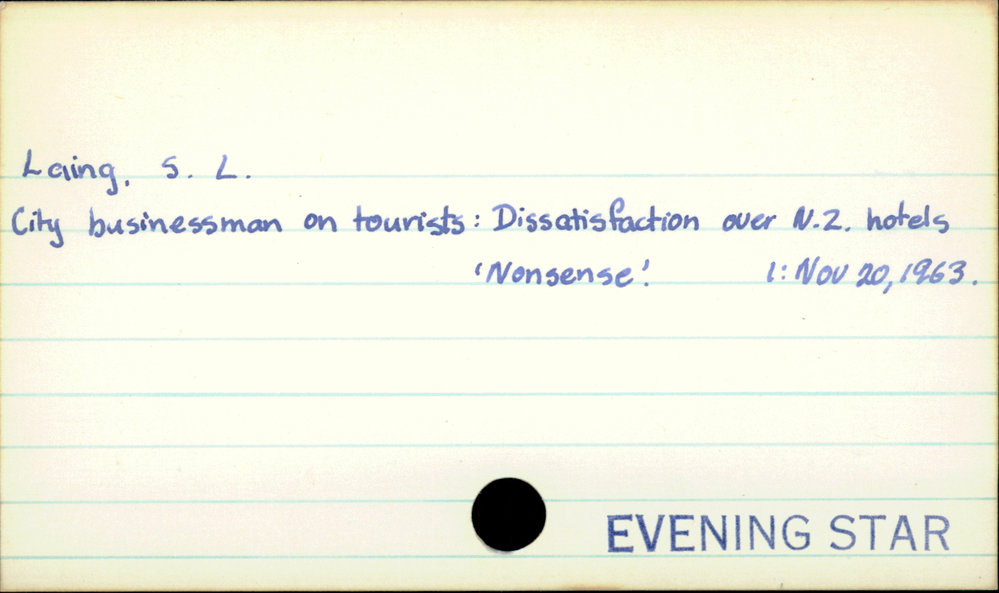 Laing, S. L.
City businessman on tourists: Dissatisfaction over N.Z. hotels
'Nonsense'. 1: Nov 20, 1963.
EVENING STAR